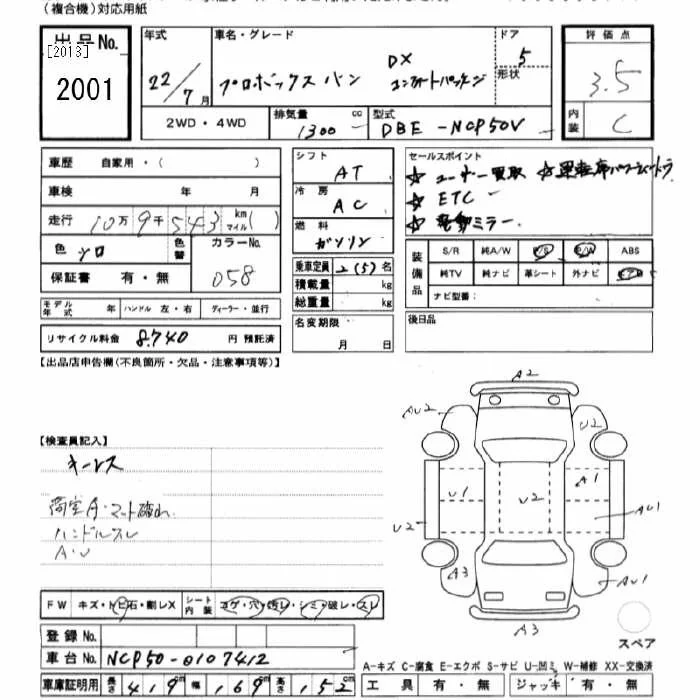 (複合機)対応用紙
出品No.
[2013]
2001
年式
22/7月
車名・グレード
プロボックスバン
DX
コンフォートパッケージ
ドア
5
形状
評価点
3.5
内装
C
2WD・4WD
排気量
1300
cc
型式
DBE-NCP50V
車歴
自家用・( )
車検
年 月
走行
10万9千543
km
マイル
( )
色
シロ
色替
カラーNo.
058
保証書
有・無
シフト
AT
冷房
AC
燃料
ガソリン
乗車定員
2(5)名
積載量
kg
総重量
kg
セールスポイント
☆ユーザー買取
☆運転席パワーシート
☆ETC
☆電動ミラー
装備品
S/R
純A/W
P/S
P/W
ABS
純TV
純ナビ
革シート
外ナビ
エアB
ナビ型番:
モデル年式
年
ハンドル 左・右
ディーラー・並行
リサイクル料金
8.740
円 預託済
名変期限
月 日
後日品
【出品店申告欄(不良箇所・欠品・注意事項等)】
【検査員記入】
キーレス
荷室A・マット破れ
ハンドルスレ
A・U
A2
AU2
U2
U1
U2
A1
U2
AU1
A3
AU1
A3
スペア
FW
キズ・トビ石・割レX
シート内装
コゲ・穴・汚レ・シミ・破レ・スレ
登録No.
車台No.
NCP50-0107412
車庫証明用
長さ
419cm
幅
169cm
高さ
152cm
A-キズ C-腐食 E-エクボ S-サビ U-凹ミ W-補修 XX-交換済
工具
有・無
ジャッキ
有・無